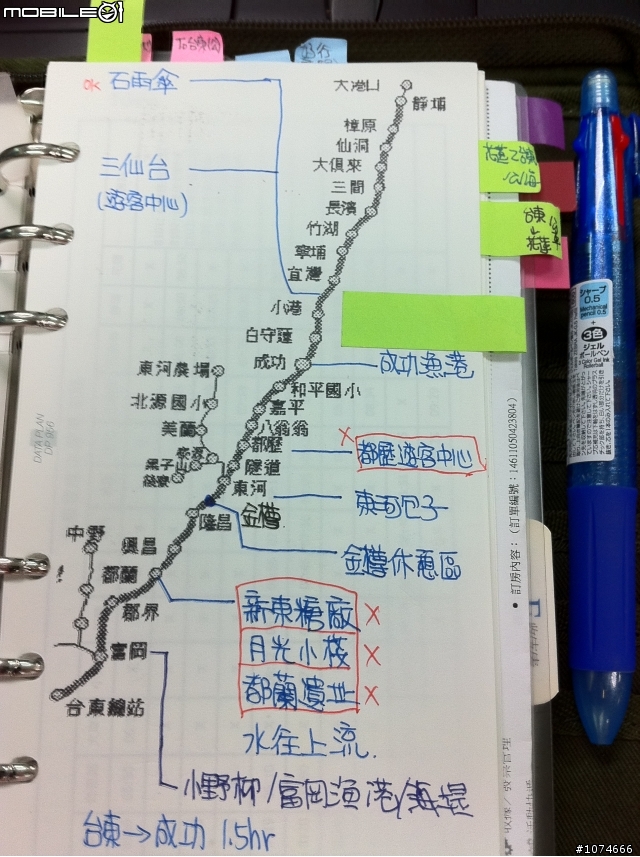 MOBILE01
石雨傘
三仙台
(遊客中心)
大港口
靜埔
樟原
仙洞
大俱來
三間
長濱
竹湖
寧埔
宜灣
小港
白守蓮
成功
成功漁港
和平國小
嘉平
八翁翁
都歷
都歷遊客中心
隧道
東河農場
北源國小
美蘭
泰源
果子山
東河
東河包子
隆昌
金樽
金樽休憩區
中野
興昌
都蘭
郡界
富岡
台東總站
新東糖廠
月光小棧
都蘭遺址
水往上流
小野柳/富岡漁港/
台東→成功 1.5hr
DATA PLAN
シャープ
0.5
Mechanical
pencil 0.5
+
3色
ジェル
ボールペン
• 訂房內容：(訂單編號：14611050423804)
台東
#1074666